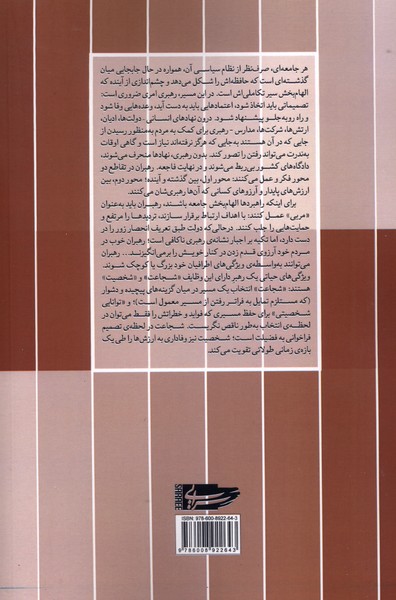 هر جامعه‌ای، صرف‌نظر از نظام سیاسی آن، همواره در حال جابجایی میان
گذشته‌ای است که حافظه‌اش را شکل می‌دهد و چشم‌اندازی از آینده که
الهام‌بخش سیر تکاملی‌اش است. در این مسیر، رهبری امری ضروری است:
تصمیماتی باید اتخاذ شود، اعتمادهایی باید به دست آید، وعده‌هایی وفا شود
و راه رو به جلو پیشنهاد شود. درون نهادهای انسانی - دولت‌ها، ادیان،
ارتش‌ها، شرکت‌ها، مدارس - رهبری برای کمک به مردم به‌منظور رسیدن از
جایی که در آن هستند به جایی که هرگز نرفته‌اند نیاز است و گاهی اوقات
به‌ندرت می‌تواند رفتن را تصور کند. بدون رهبری، نهادها منحرف می‌شوند،
دادگاه‌های کشور بی‌ربط می‌شوند و در نهایت فاجعه. رهبران در تقاطع دو
محور فکر و عمل می‌کنند: محور اول، بین گذشته و آینده؛ محور دوم، بین
ارزش‌های پایدار و آرزوهای کسانی که آن‌ها رهبری‌شان می‌کنند.
برای اینکه راهبردها الهام‌بخش جامعه باشند، رهبران باید به‌عنوان
«مربی» عمل کنند: با اهداف ارتباط برقرار سازند، تردیدها را مرتفع و
حمایت‌هایی را جلب کنند. درحالی‌که دولت طبق تعریف انحصار زور را در
دست دارد، اما تکیه بر اجبار نشانه‌ی رهبری ناکافی است؛ رهبران خوب در
مردم خود آرزوی قدم زدن در کنار خویش را برمی‌انگیزند... رهبران
می‌توانند به‌واسطه‌ی ویژگی‌های اطرافیان خود بزرگ یا کوچک شوند.
ویژگی‌های حیاتی یک رهبر دارای این وظایف «شجاعت» و «شخصیت»
هستند: «شجاعت» انتخاب یک مسیر در میان گزینه‌های پیچیده و دشوار
(که مستلزم تمایل به فراتر رفتن از مسیر معمول است)؛ و «توانایی
شخصیتی» برای حفظ مسیری که فواید و خطراتش را فقط می‌توان در
لحظه‌ی انتخاب به‌طور ناقص نگریست. شجاعت در لحظه‌ی تصمیم
فراخوانی به فضیلت است؛ شخصیت نیز وفاداری به ارزش‌ها را طی یک
بازه‌ی زمانی طولانی تقویت می‌کند.
ISBN: 978-600-8922-64-3
9 786008 922643